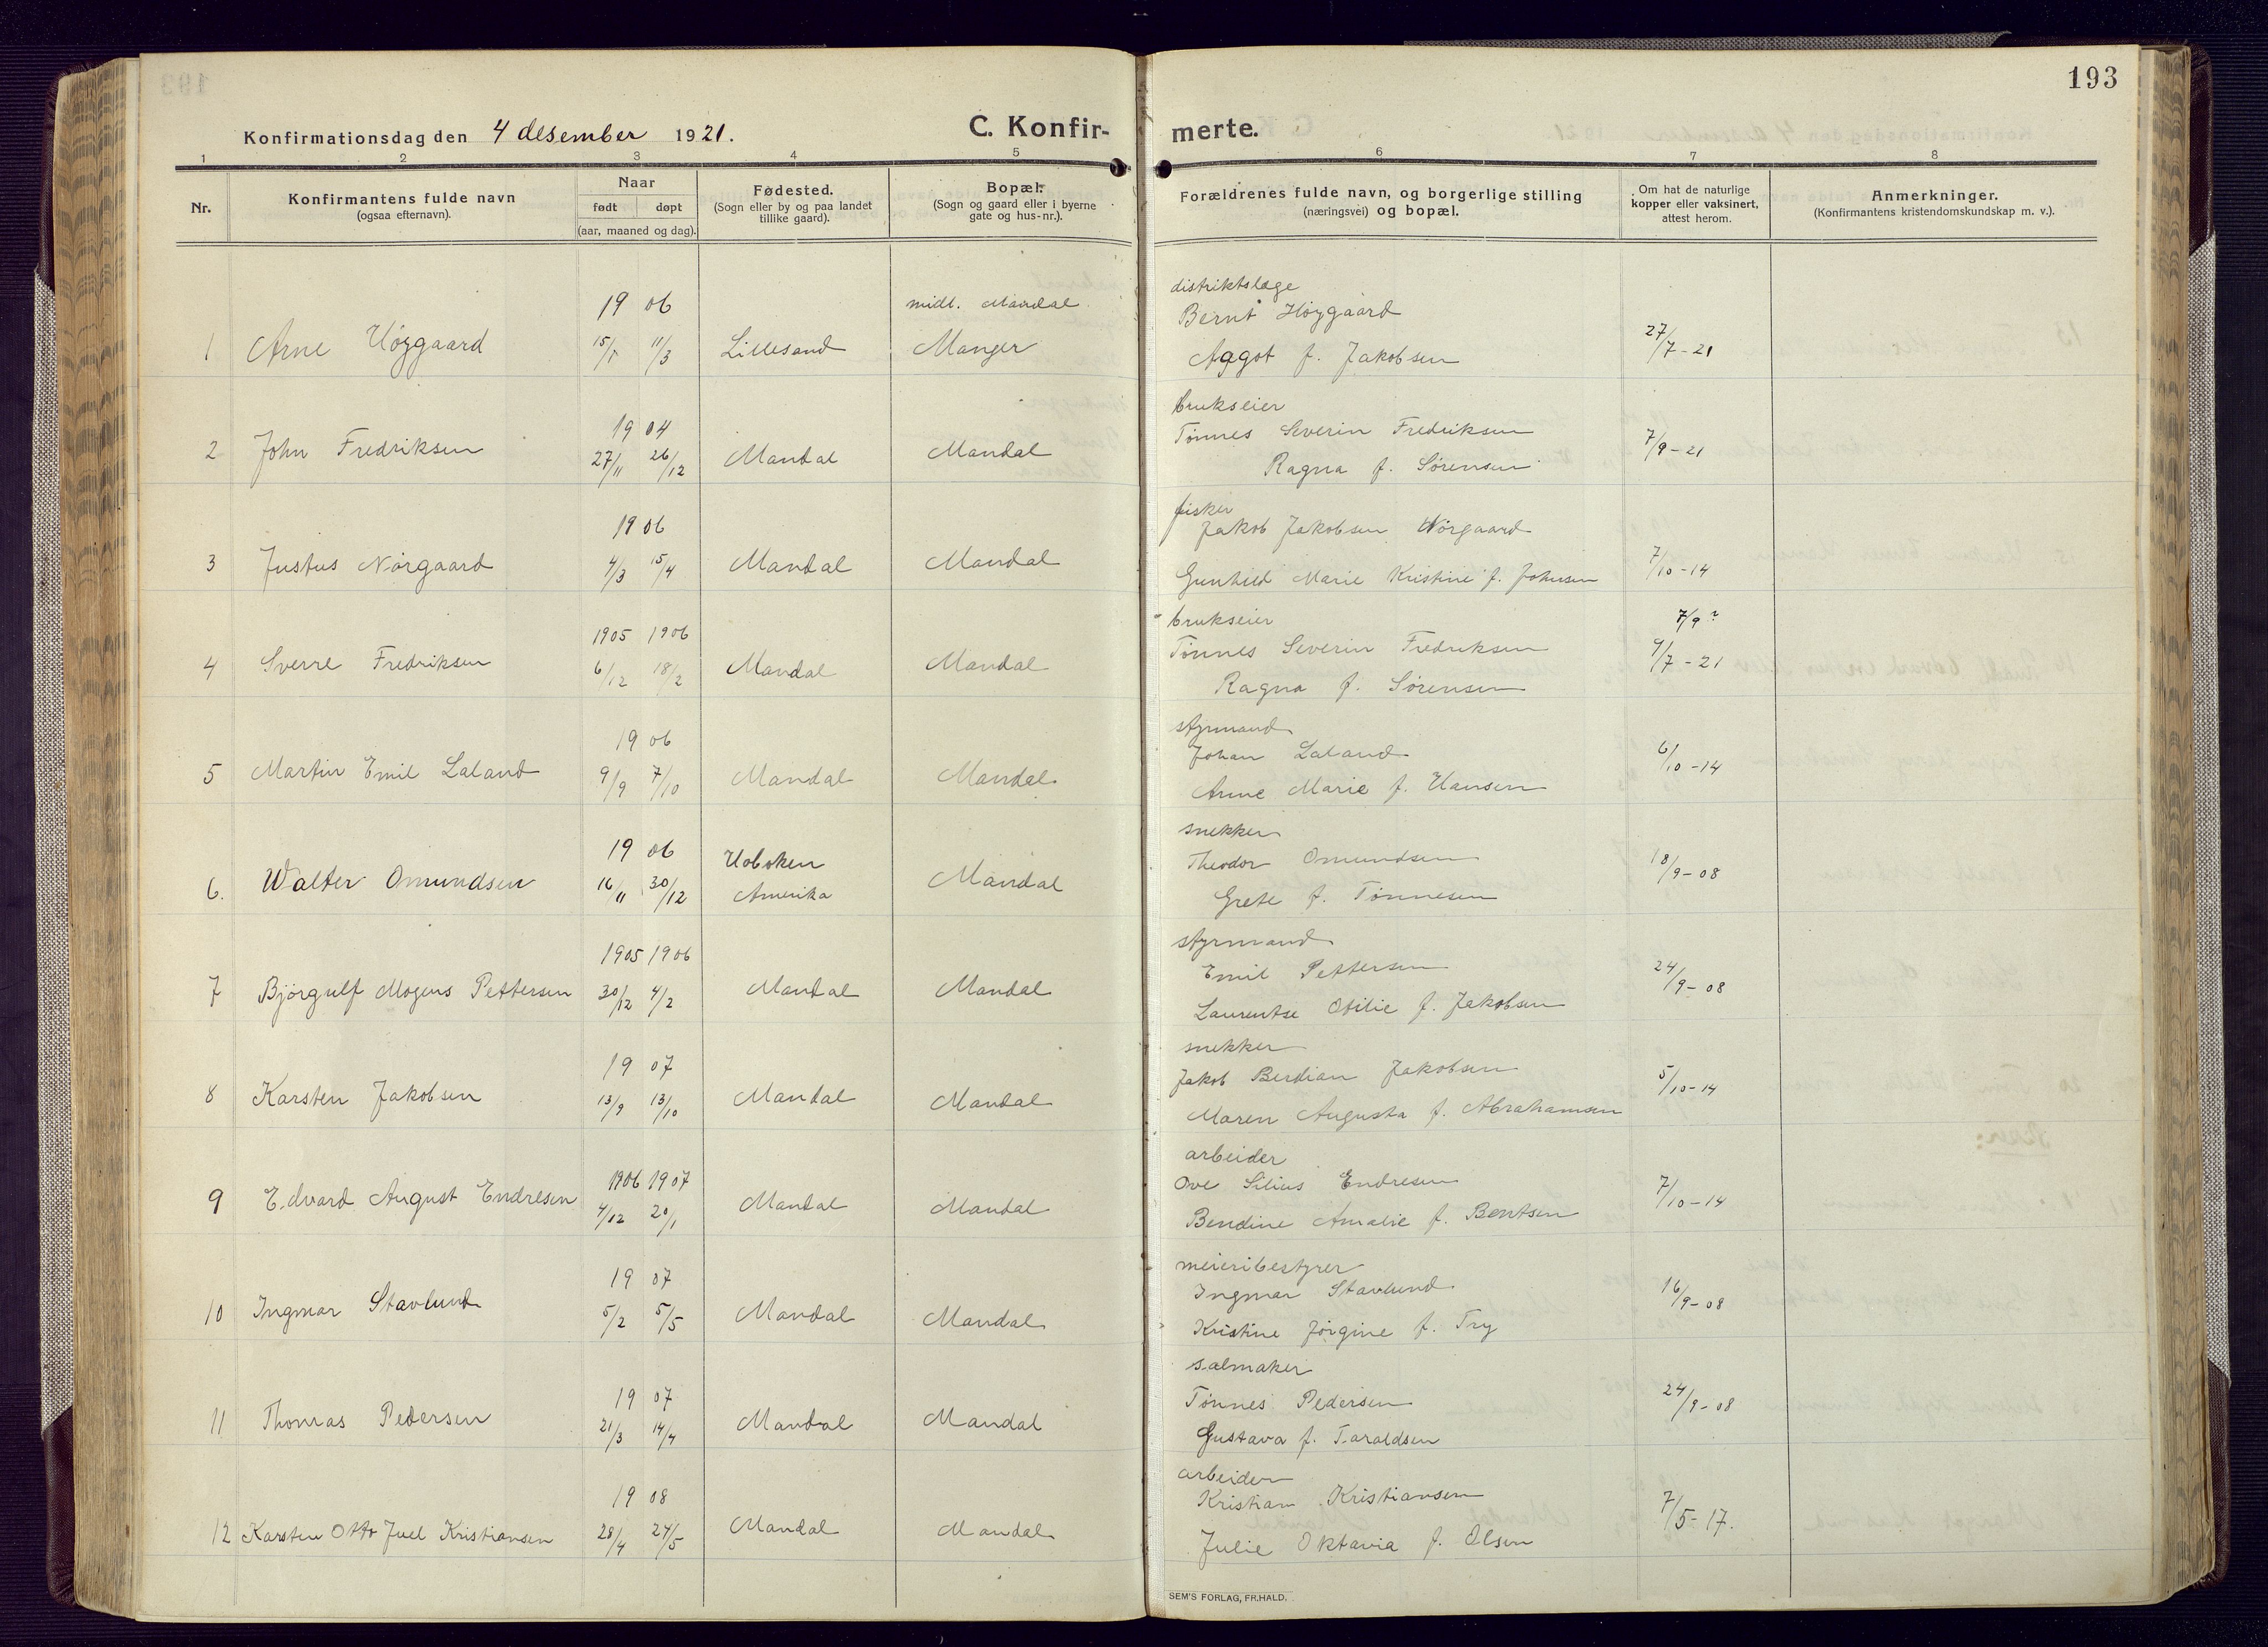 193
Konfirmationsdag den 4 desember 1921.
C. Konfir-
merte.
1 2 3 4 5 6 7 8
Nr.
Konfirmantens fulde navn
(ogsaa efternavn).
Naar
født døpt
(aar, maaned og dag).
Fødested.
(Sogn eller by og paa landet
tillike gaard).
Bopæl.
(Sogn og gaard eller i byerne
gate og hus-nr.).
Forældrenes fulde navn, og borgerlige stilling
(næringsvei) og bopæl.
Om hat de naturlige
kopper eller vaksinert,
attest herom.
Anmerkninger.
(Konfirmantens kristendomskundskap m. v.).
19 06 midl. Mandal distriktslæge
Bernt Høygaard
1 Arne Høygaard 15/1 11/3 Lillesand Manger Aagot f. Jakobsen 27/7-21
19 04 brukseier
Tønnes Severin Fredriksen
2 John Fredriksen 27/11 26/12 Mandal Mandal Ragna f. Sørensen 7/9-21
19 06 fisker
Jakob Jakobsen Nørgaard
3 Justus Nørgaard 4/3 15/4 Mandal Mandal Gunhild Marie Kristine f. Johnsen 7/10-14
1905 1906 brukseier 7/9?
Tønnes Severin Fredriksen
4 Sverre Fredriksen 6/12 18/2 Mandal Mandal Ragna f. Sørensen 9/7-21
19 06 styrmand
Johan Laland
5 Martin Emil Laland 9/9 7/10 Mandal Mandal Anne Marie f. Hansen 6/10-14
19 06 Hoboken snekker
Theodor Omundsen
6. Walter Omundsen 16/11 30/12 Amerika Mandal Grete f. Tønnesen 18/9-08
1905 1906 styrmand
Emil Pettersen
7 Bjørgulf Mogens Pettersen 30/12 4/2 Mandal Mandal Laurentse Otilie f. Jakobsen 24/9-08
19 07 snekker
Jakob Berdian Jakobsen
8 Karsten Jakobsen 13/9 13/10 Mandal Mandal Maren Augusta f. Abrahamsen 5/10-14
1906 1907 arbeider
Ove Silius Endresen
9 Edvard August Endresen 4/12 20/1 Mandal Mandal Bendine Amalie f. Bentsen 7/10-14
19 07 meieribestyrer
Ingmar Stavlund
10 Ingmar Stavlund 5/2 5/5 Mandal Mandal Kristine Jørgine f. Try 16/9-08
19 07 salmaker
Tønnes Pedersen
11 Thomas Pedersen 21/3 14/4 Mandal Mandal Gustava f. Taraldsen 24/9-08
19 08 arbeider
Kristian Kristiansen
12 Karsten Otto Juel Kristiansen 28/4 24/5 Mandal Mandal Julie Oktavia f. Olsen 7/5-17.
SEM'S FORLAG, FR.HALD.